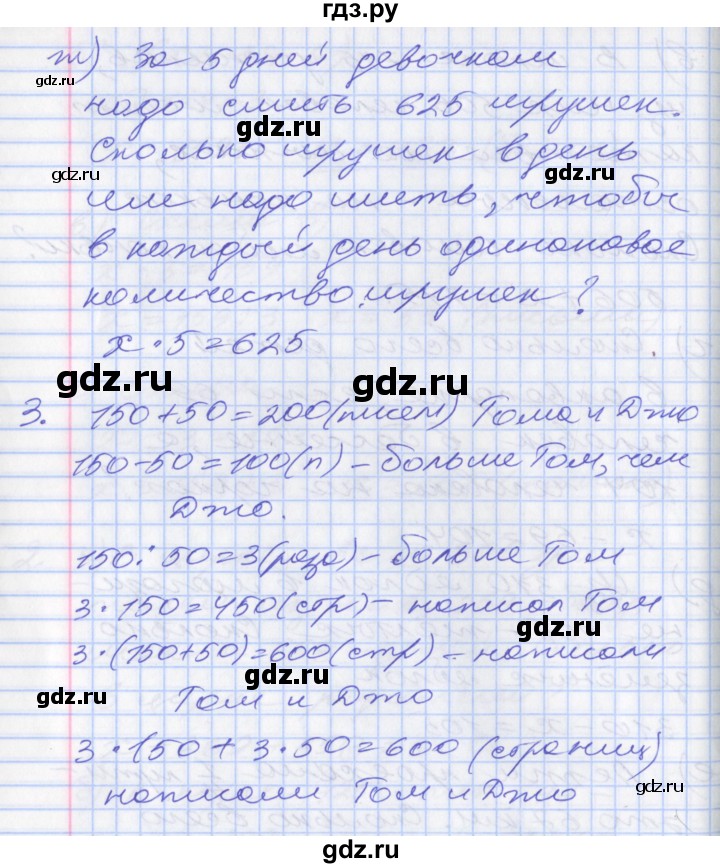 гдз.ру
т) За 5 дней девочкам
надо сшить 625 игрушек.
gdz.ru
gdz.ru
Сколько игрушек в день
gdz.ru
gdz.ru
им надо шить, чтобы
в каждый день одинаковое
количество игрушек?
x·5=625
gdz.ru
gdz.ru
3. 150+50=200(писем) Тома и Джо
150-50=100(п) – больше Том, чем
Джо.
150:50=3(раза) – больше Том
3·150=450(стр) – написал Том
gdz.ru
gdz.ru
3·(150+50)=600(стр) – написали
Том и Джо
3·150+3·50=600 (страниц)
gdz.ru
написали Том и Джо
gdz.ru